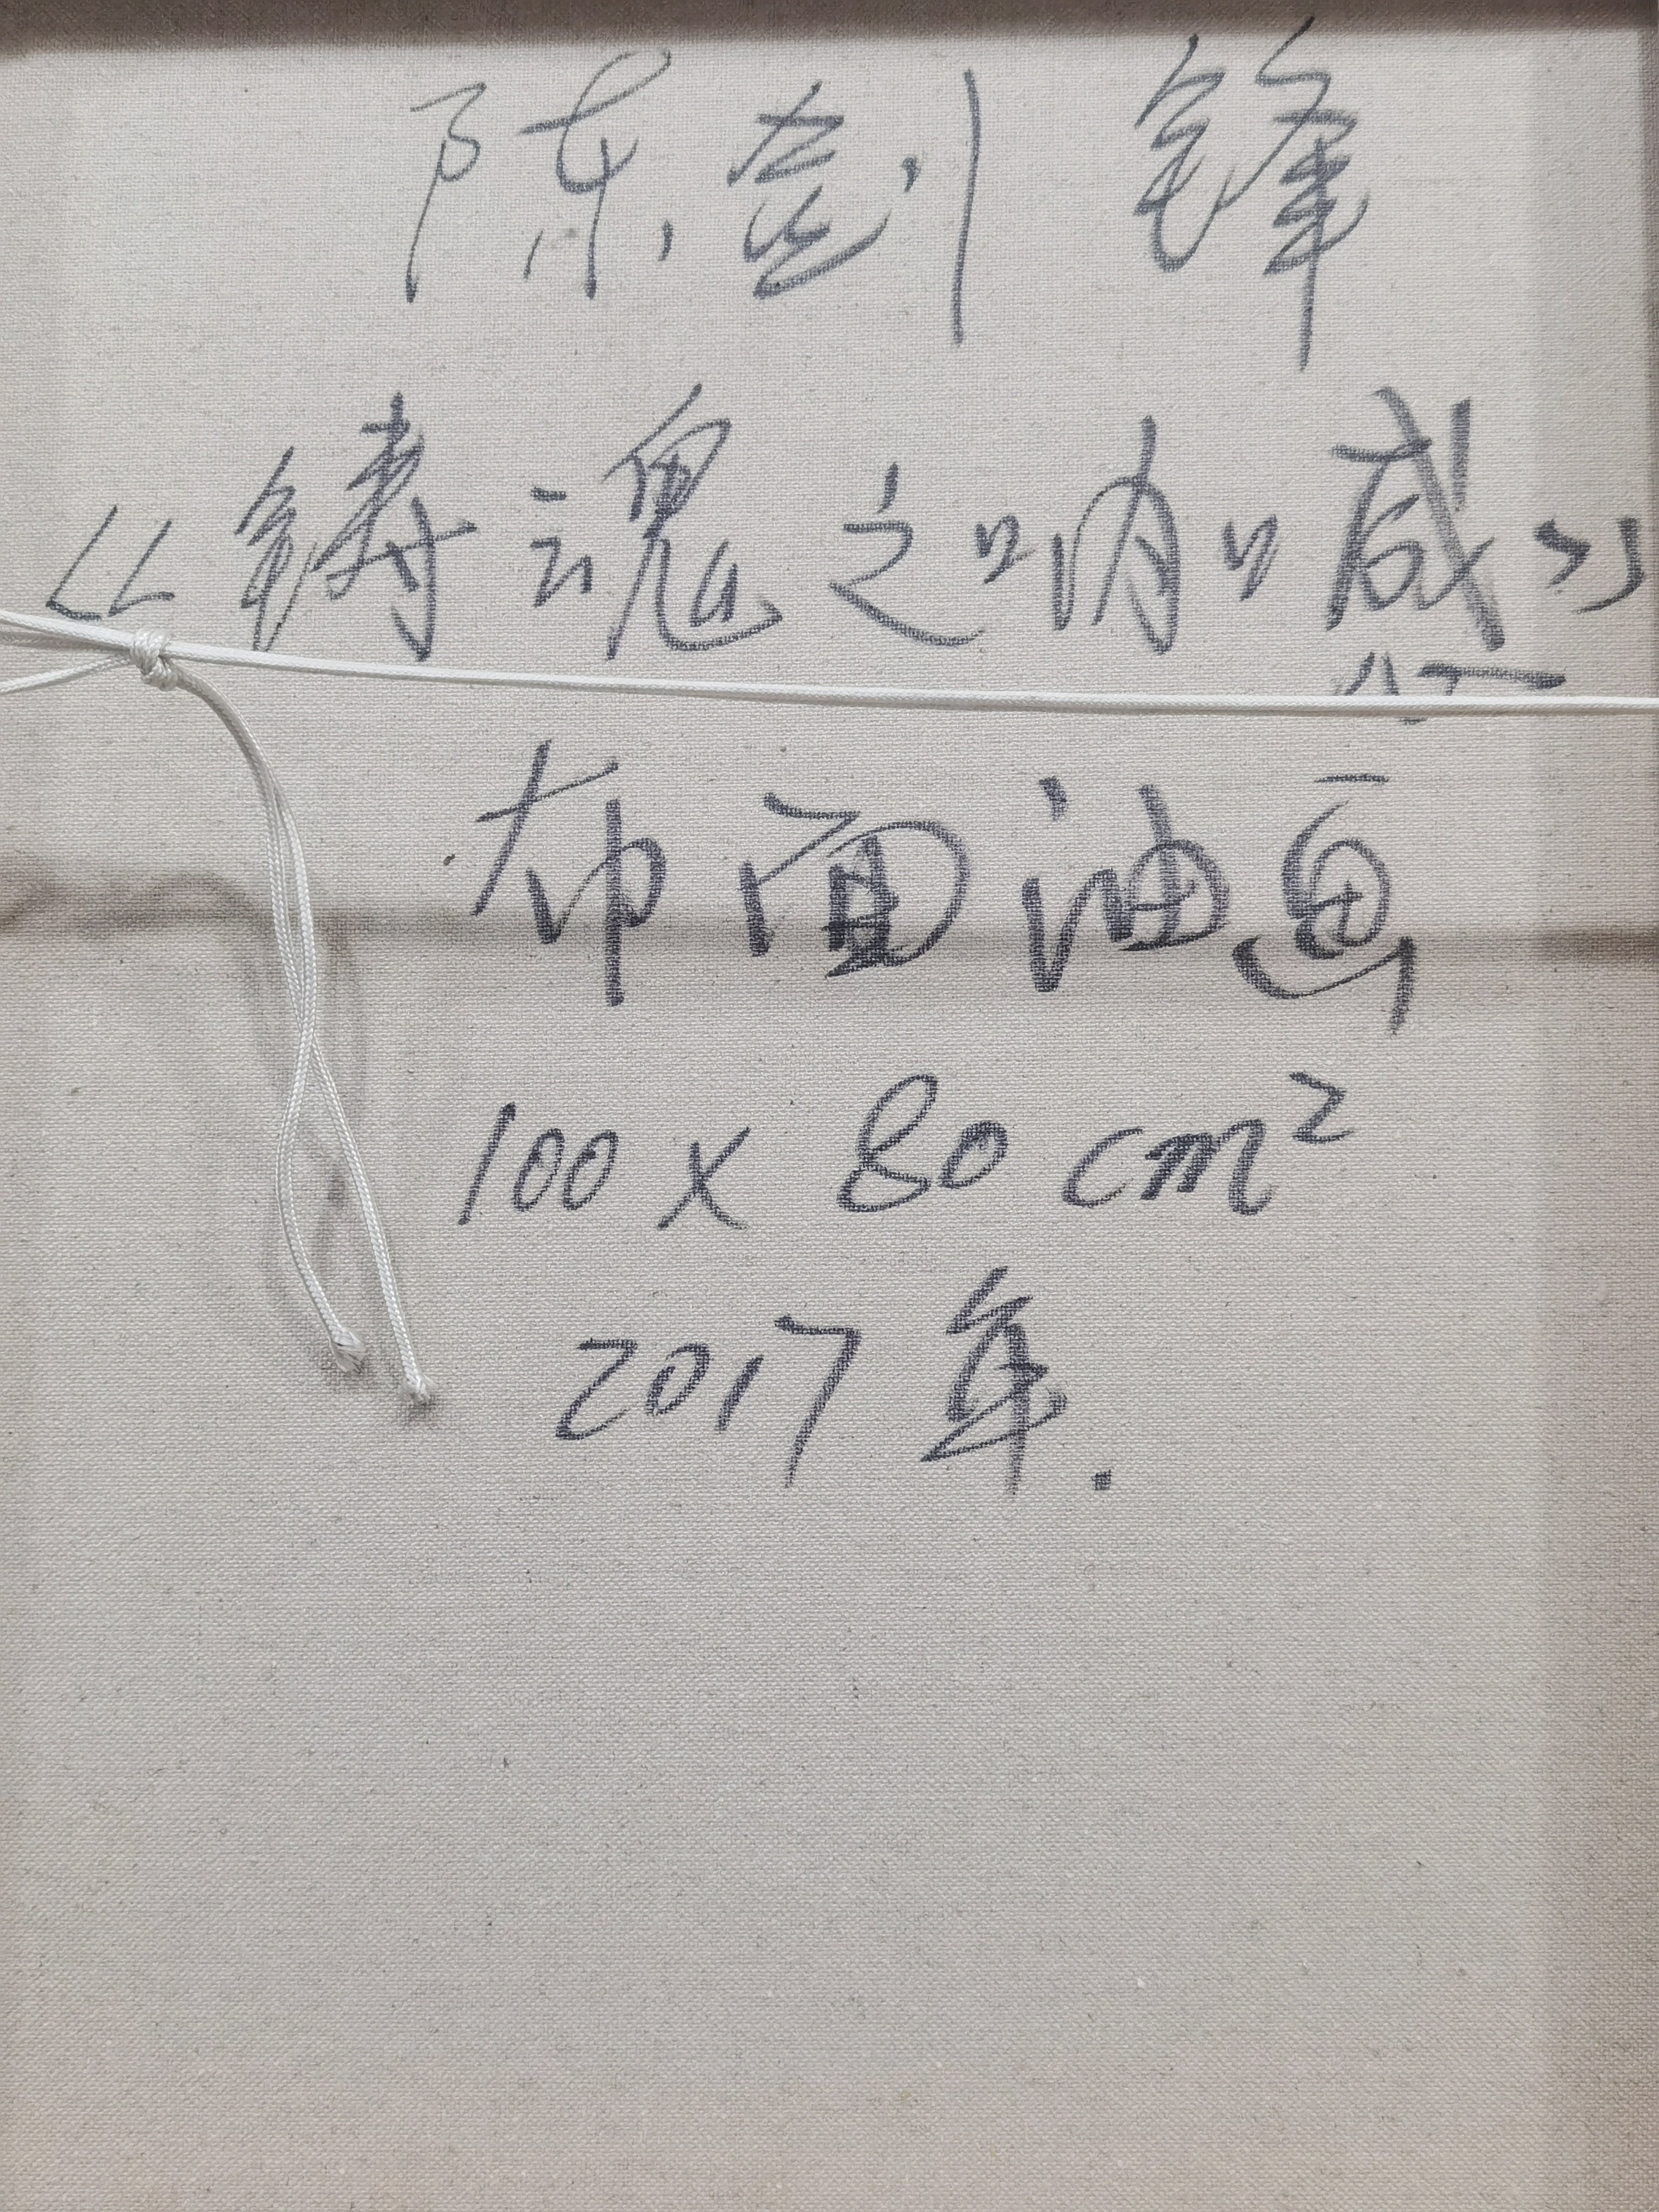 陈剑锋
《铸魂之呐喊》
布面油画
100 x 80 cm²
2017年.